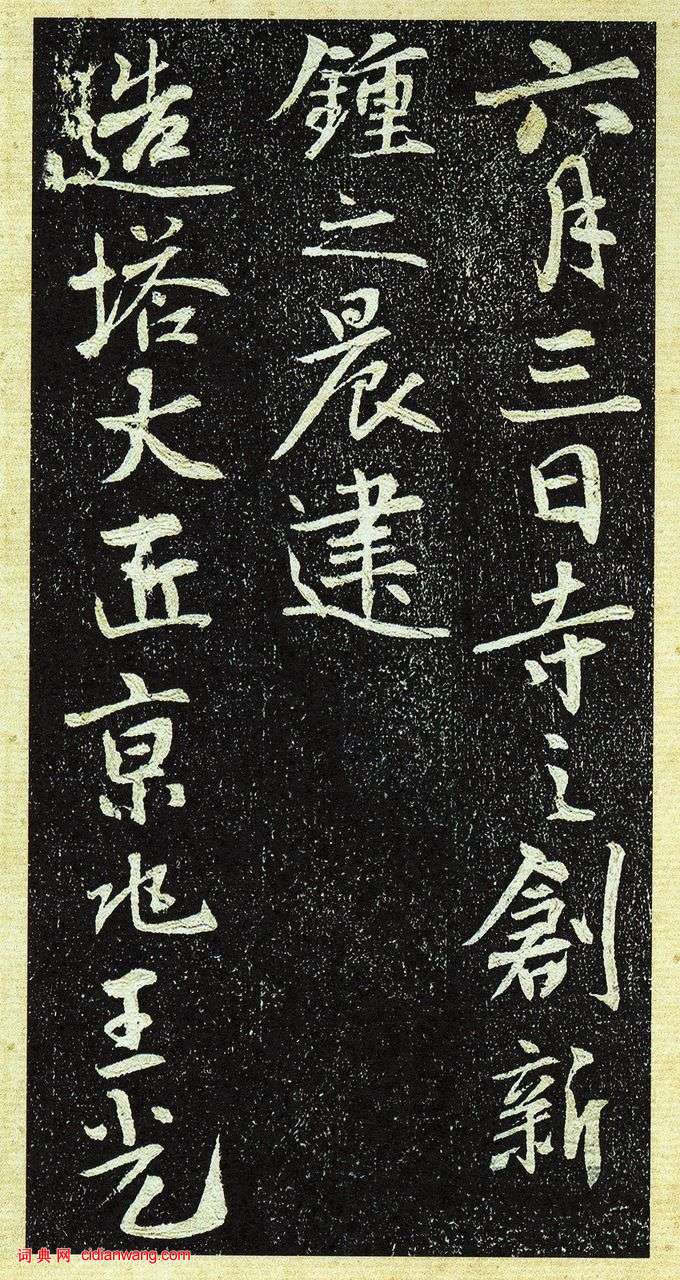 六月三日寺之創新
鍾之晨建
造塔大匠京兆王光
词典网 cidianwang.com